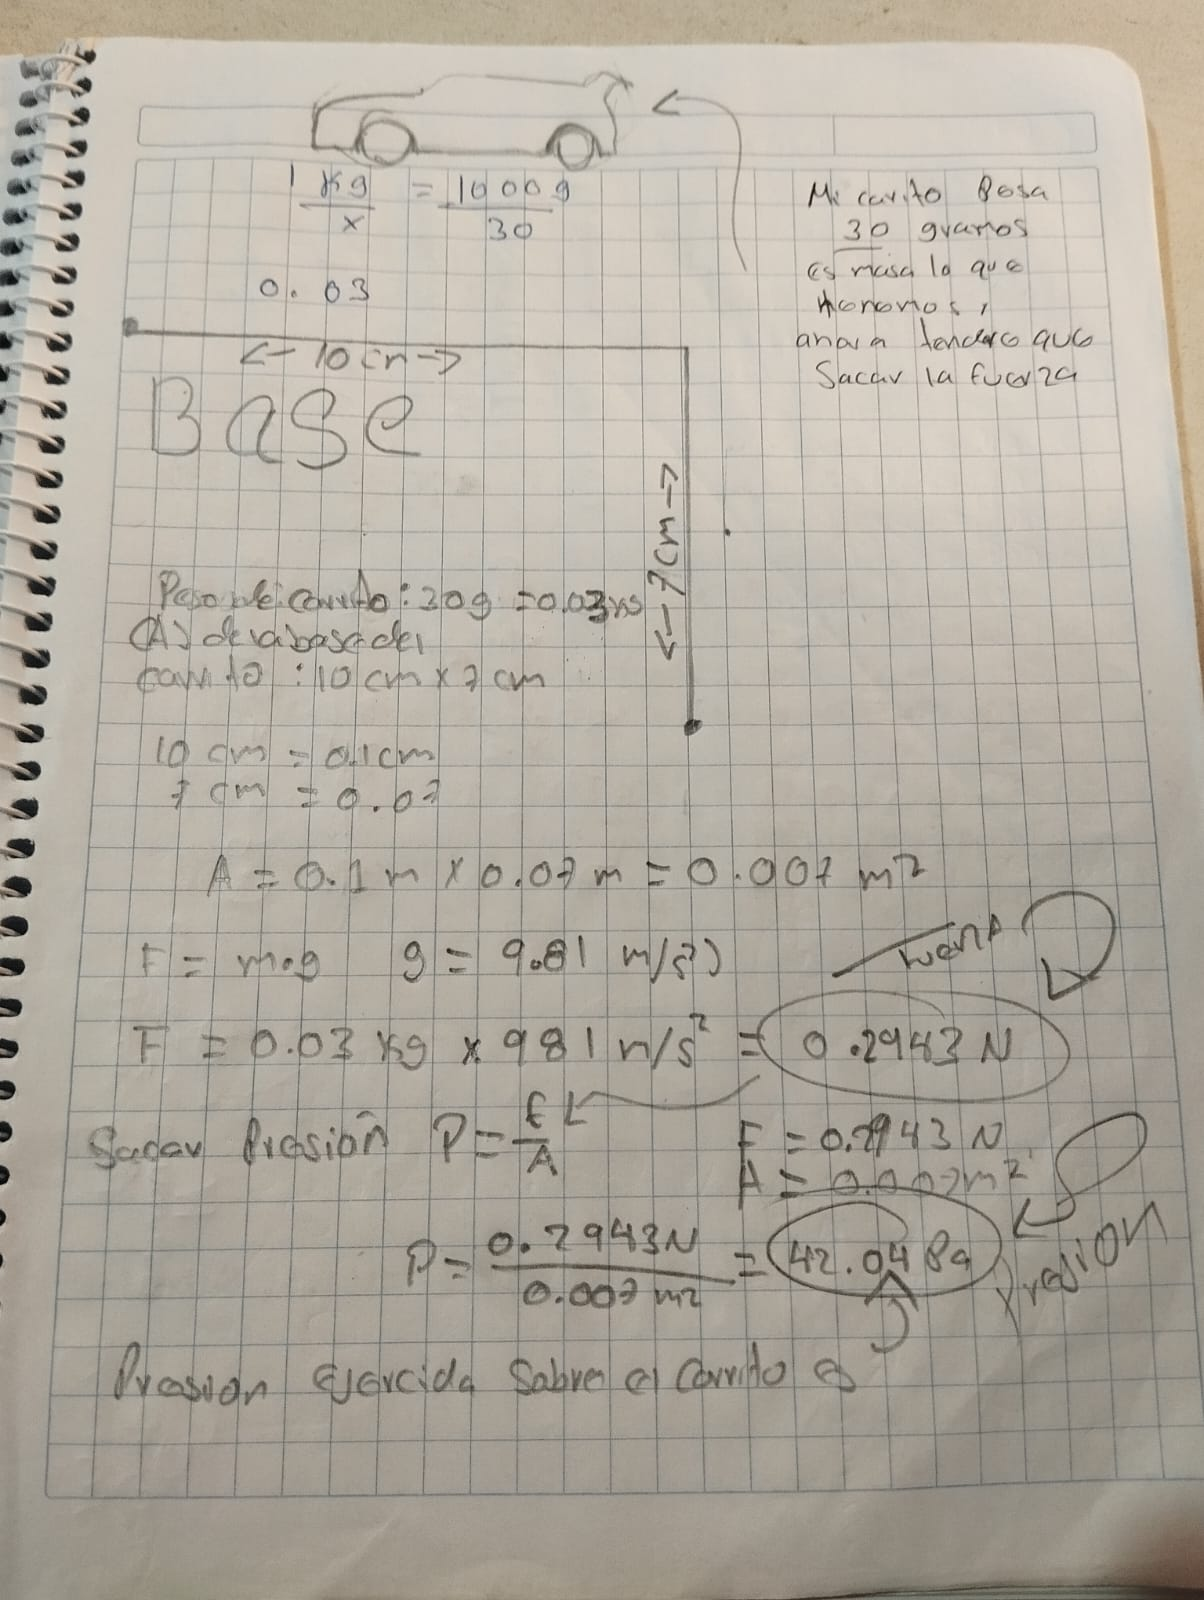 1 Kg = 1000g
x 30
0.03
Mi carrito Pesa
30 gramos
es masa lo que
ahora tendere que
Sacar la fuerza
<- 10 cm ->
Base
<- 7cm ->
Peso de carrito: 30g = 0.03 KG
(A) de la base del
carrito : 10 cm x 7 cm
10 cm = 0.1cm
7 cm = 0.07
A = 0.1 m x 0.07 m = 0.007 m2
F = m•g g = 9.81 m/s²)
F = 0.03 Kg x 981 m/s² = 0.2943 N
Sacar Presion P = F/A
F = 0.2943 N
A = 0.007m2
P = 0.2943N / 0.007 m2 = 42.04 Pa
Presion
Presion Ejercida Sobre el Carrito es